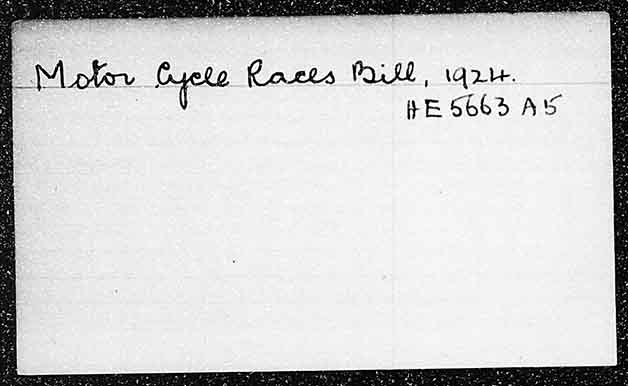 Motor Cycle Races Bill, 1924.
HE 5663 A 15